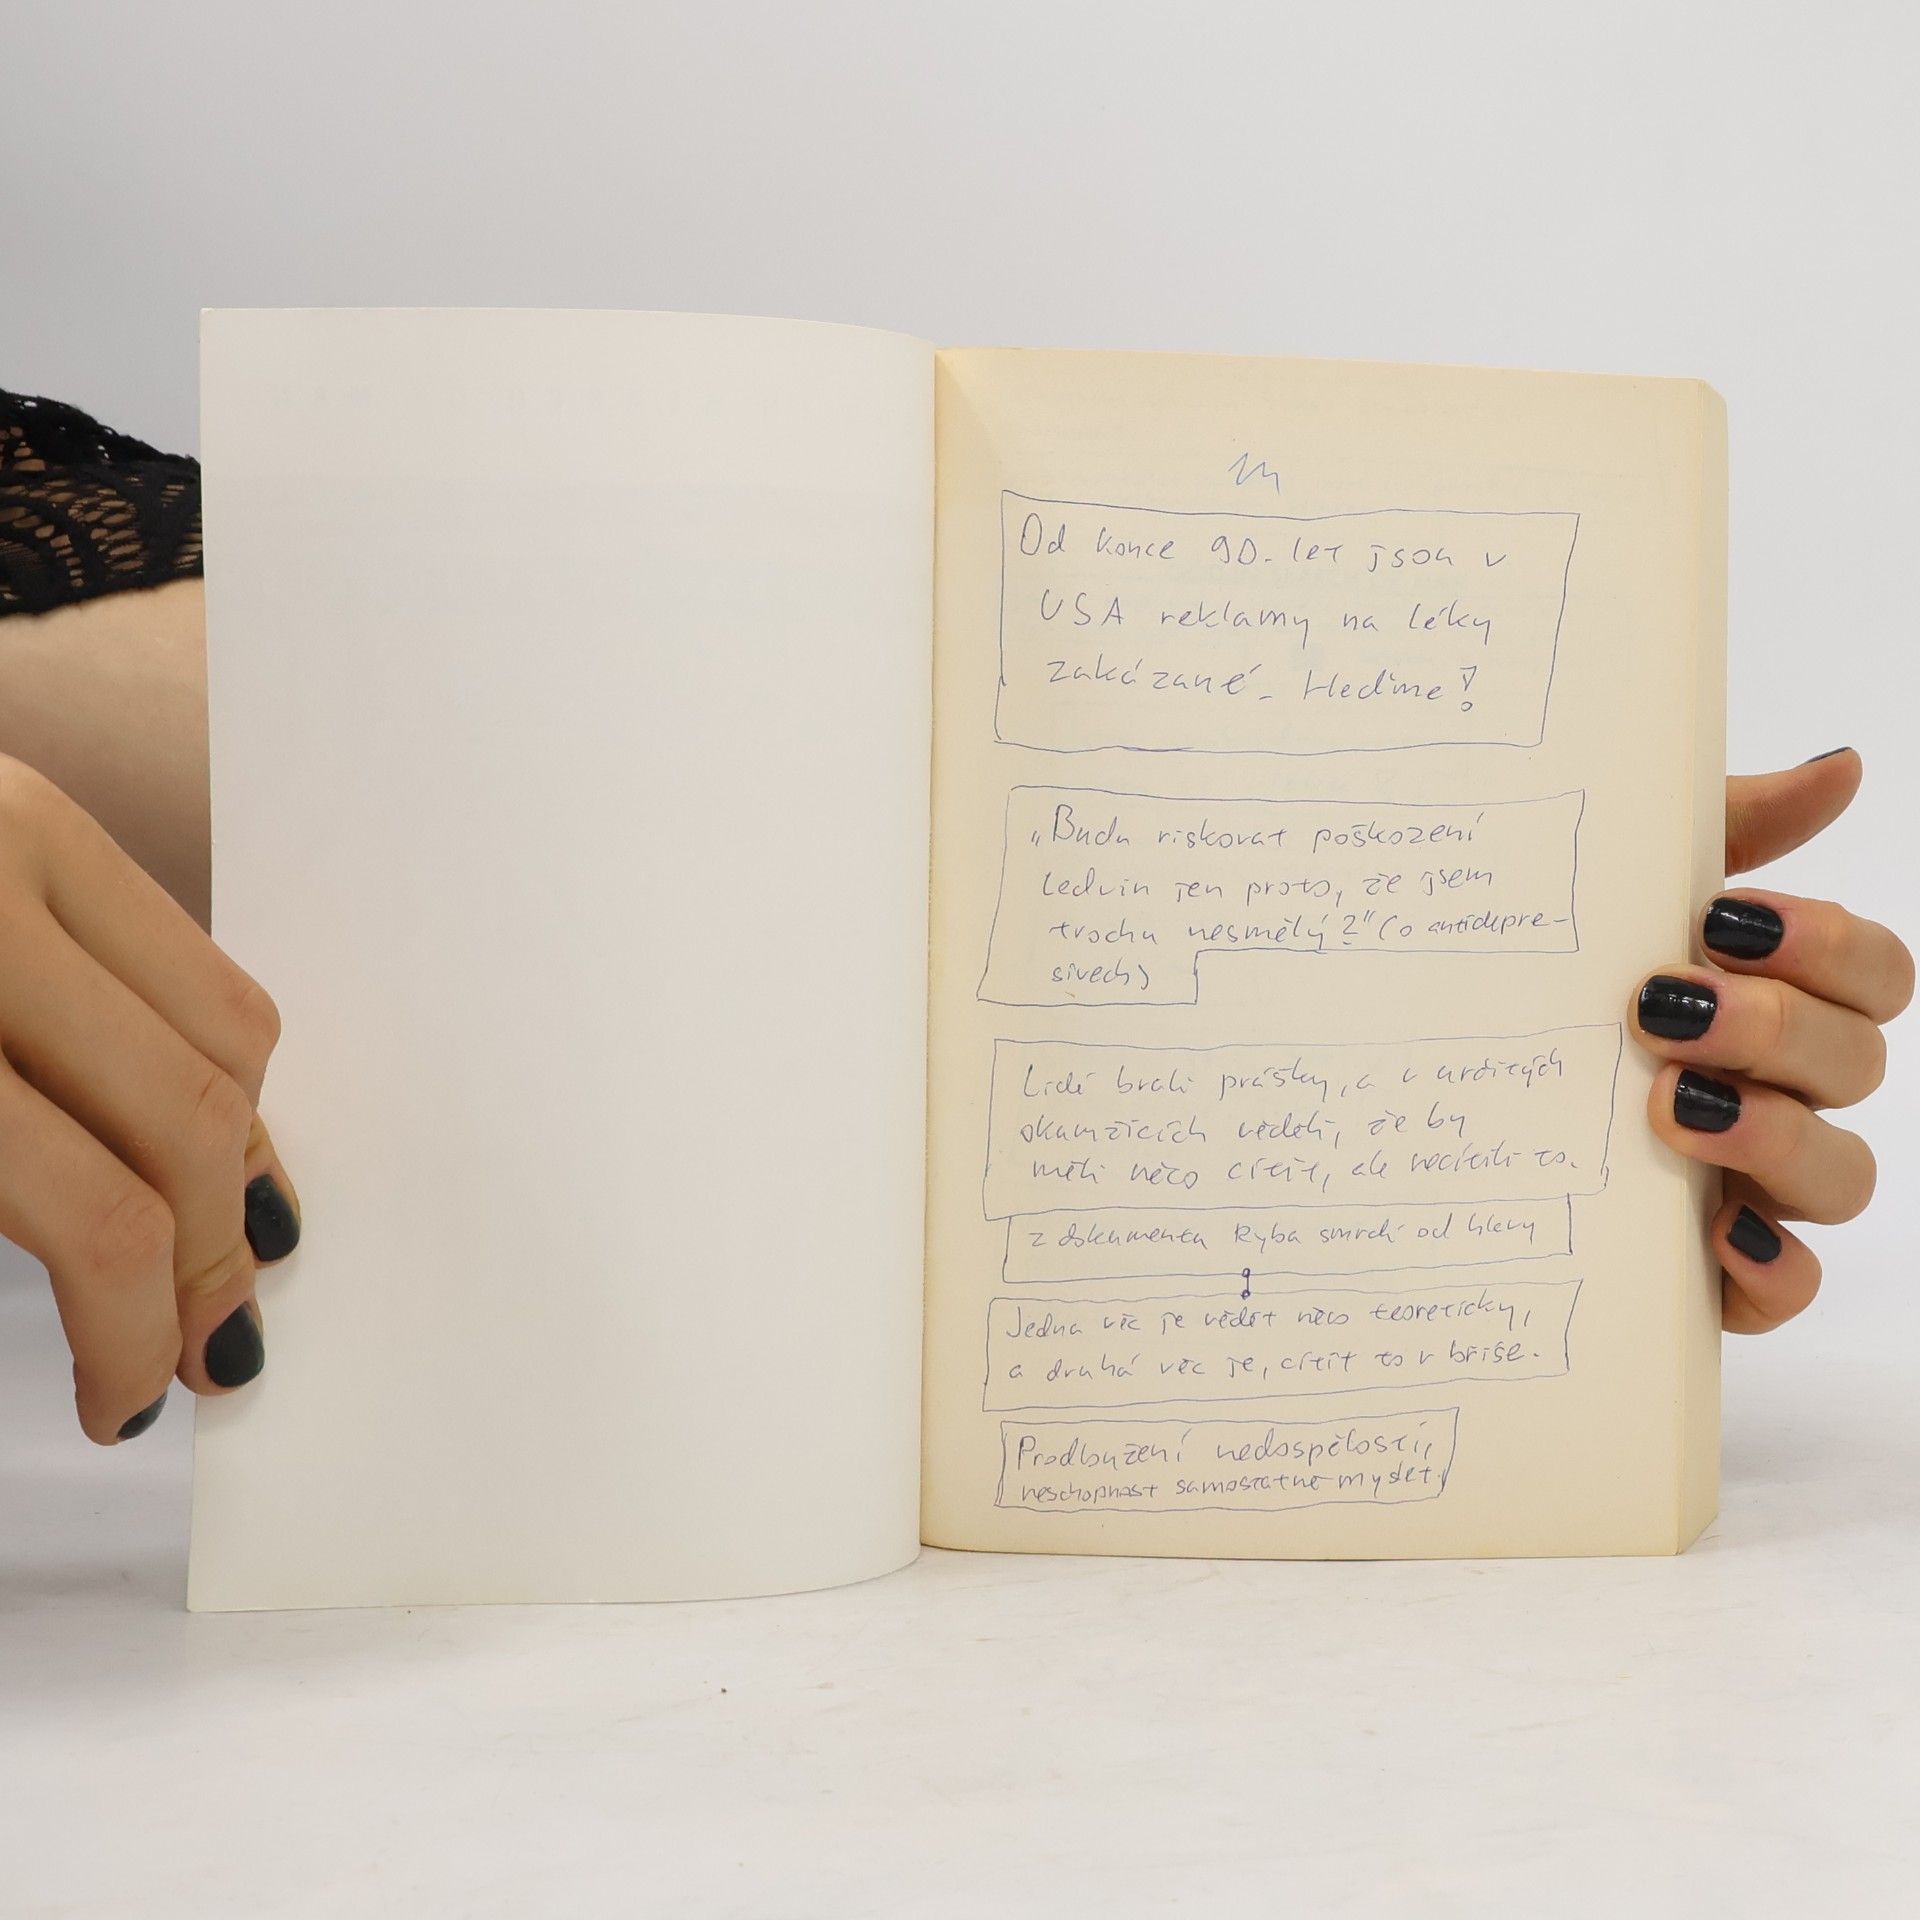 Od konce 90. let jsou v
USA reklamy na léky
zakázané. Heďme!
„Budu riskovat poškození
ledvin jen proto, že jsem
trochu nesmělý?" (o antidepre-
sivech)
Lidé brali prášky, a v určitých
okamžicích věděli, že by
měli něco cítit, ale necítili to.
z dokumentu Ryba smrdí od hlavy
Jedna věc je vědět něco teoreticky,
a druhá věc je, cítit to v břiše.
Prodloužení nedospělosti,
neschopnost samostatně myslet.